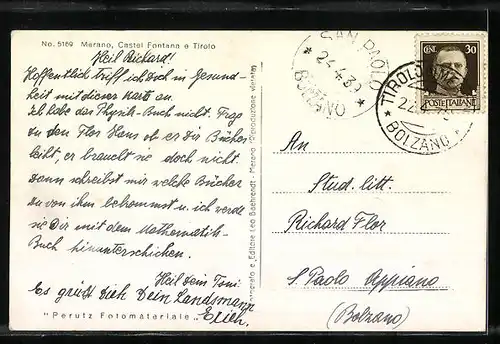 No. 5169 Merano, Castel Fontana e Tirolo
Heil Richard!
Hoffentlich triff ich dich in Gesund-
heit mit dieser Karte an.
Ich habe das Physik-Buch nicht. Frag
zu den Flor Hans ob er dir Bücher
leiht, er braucht sie doch nicht.
Dann schreibst mir welche Bücher
du von ihm bekommst u. ich werde
sie Dir mit dem Mathematik-
Buch hinunterschicken.
Heil Dein Toni
Es grüßt dich Dein Landsmann
Erich.
"Perutz Fotomateriale"
Editore Leo Baehrendt - Merano (Riproduzione vietata)
SAN PAOLO
24.4.39
BOLZANO
TIROLO
22
BOLZANO
CENT. 30
POSTE ITALIANE
An
Stud. litt.
Richard Flor
S. Paolo Appiano
(Bolzano)